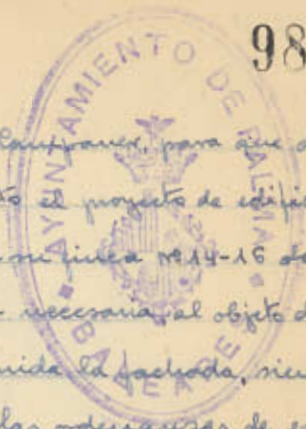 98
AYUNTAMIENTO DE PALMA
BALEARES
Campaner, para que
el proyecto de
su finca nº 14-16
necesaria al objeto
la fachada,
las ordenanzas de